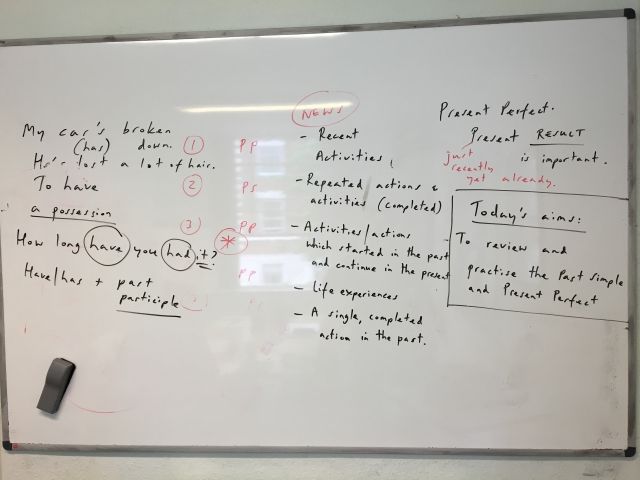 My car's broken
(has) down.
He's lost a lot of hair.
To have
a possession
How long have you had it?
Have/has + past
participle
1
2
3
*
PP
PS
PP
PP
NEWS
- Recent
Activities
- Repeated actions &
activities (completed)
- Activities/actions
which started in the past
and continue in the present
- Life experiences
- A single, completed
action in the past.
Present Perfect.
Present RESULT
is important.
just
recently
yet already.
Today's aims:
To review and
practise the Past Simple
and Present Perfect